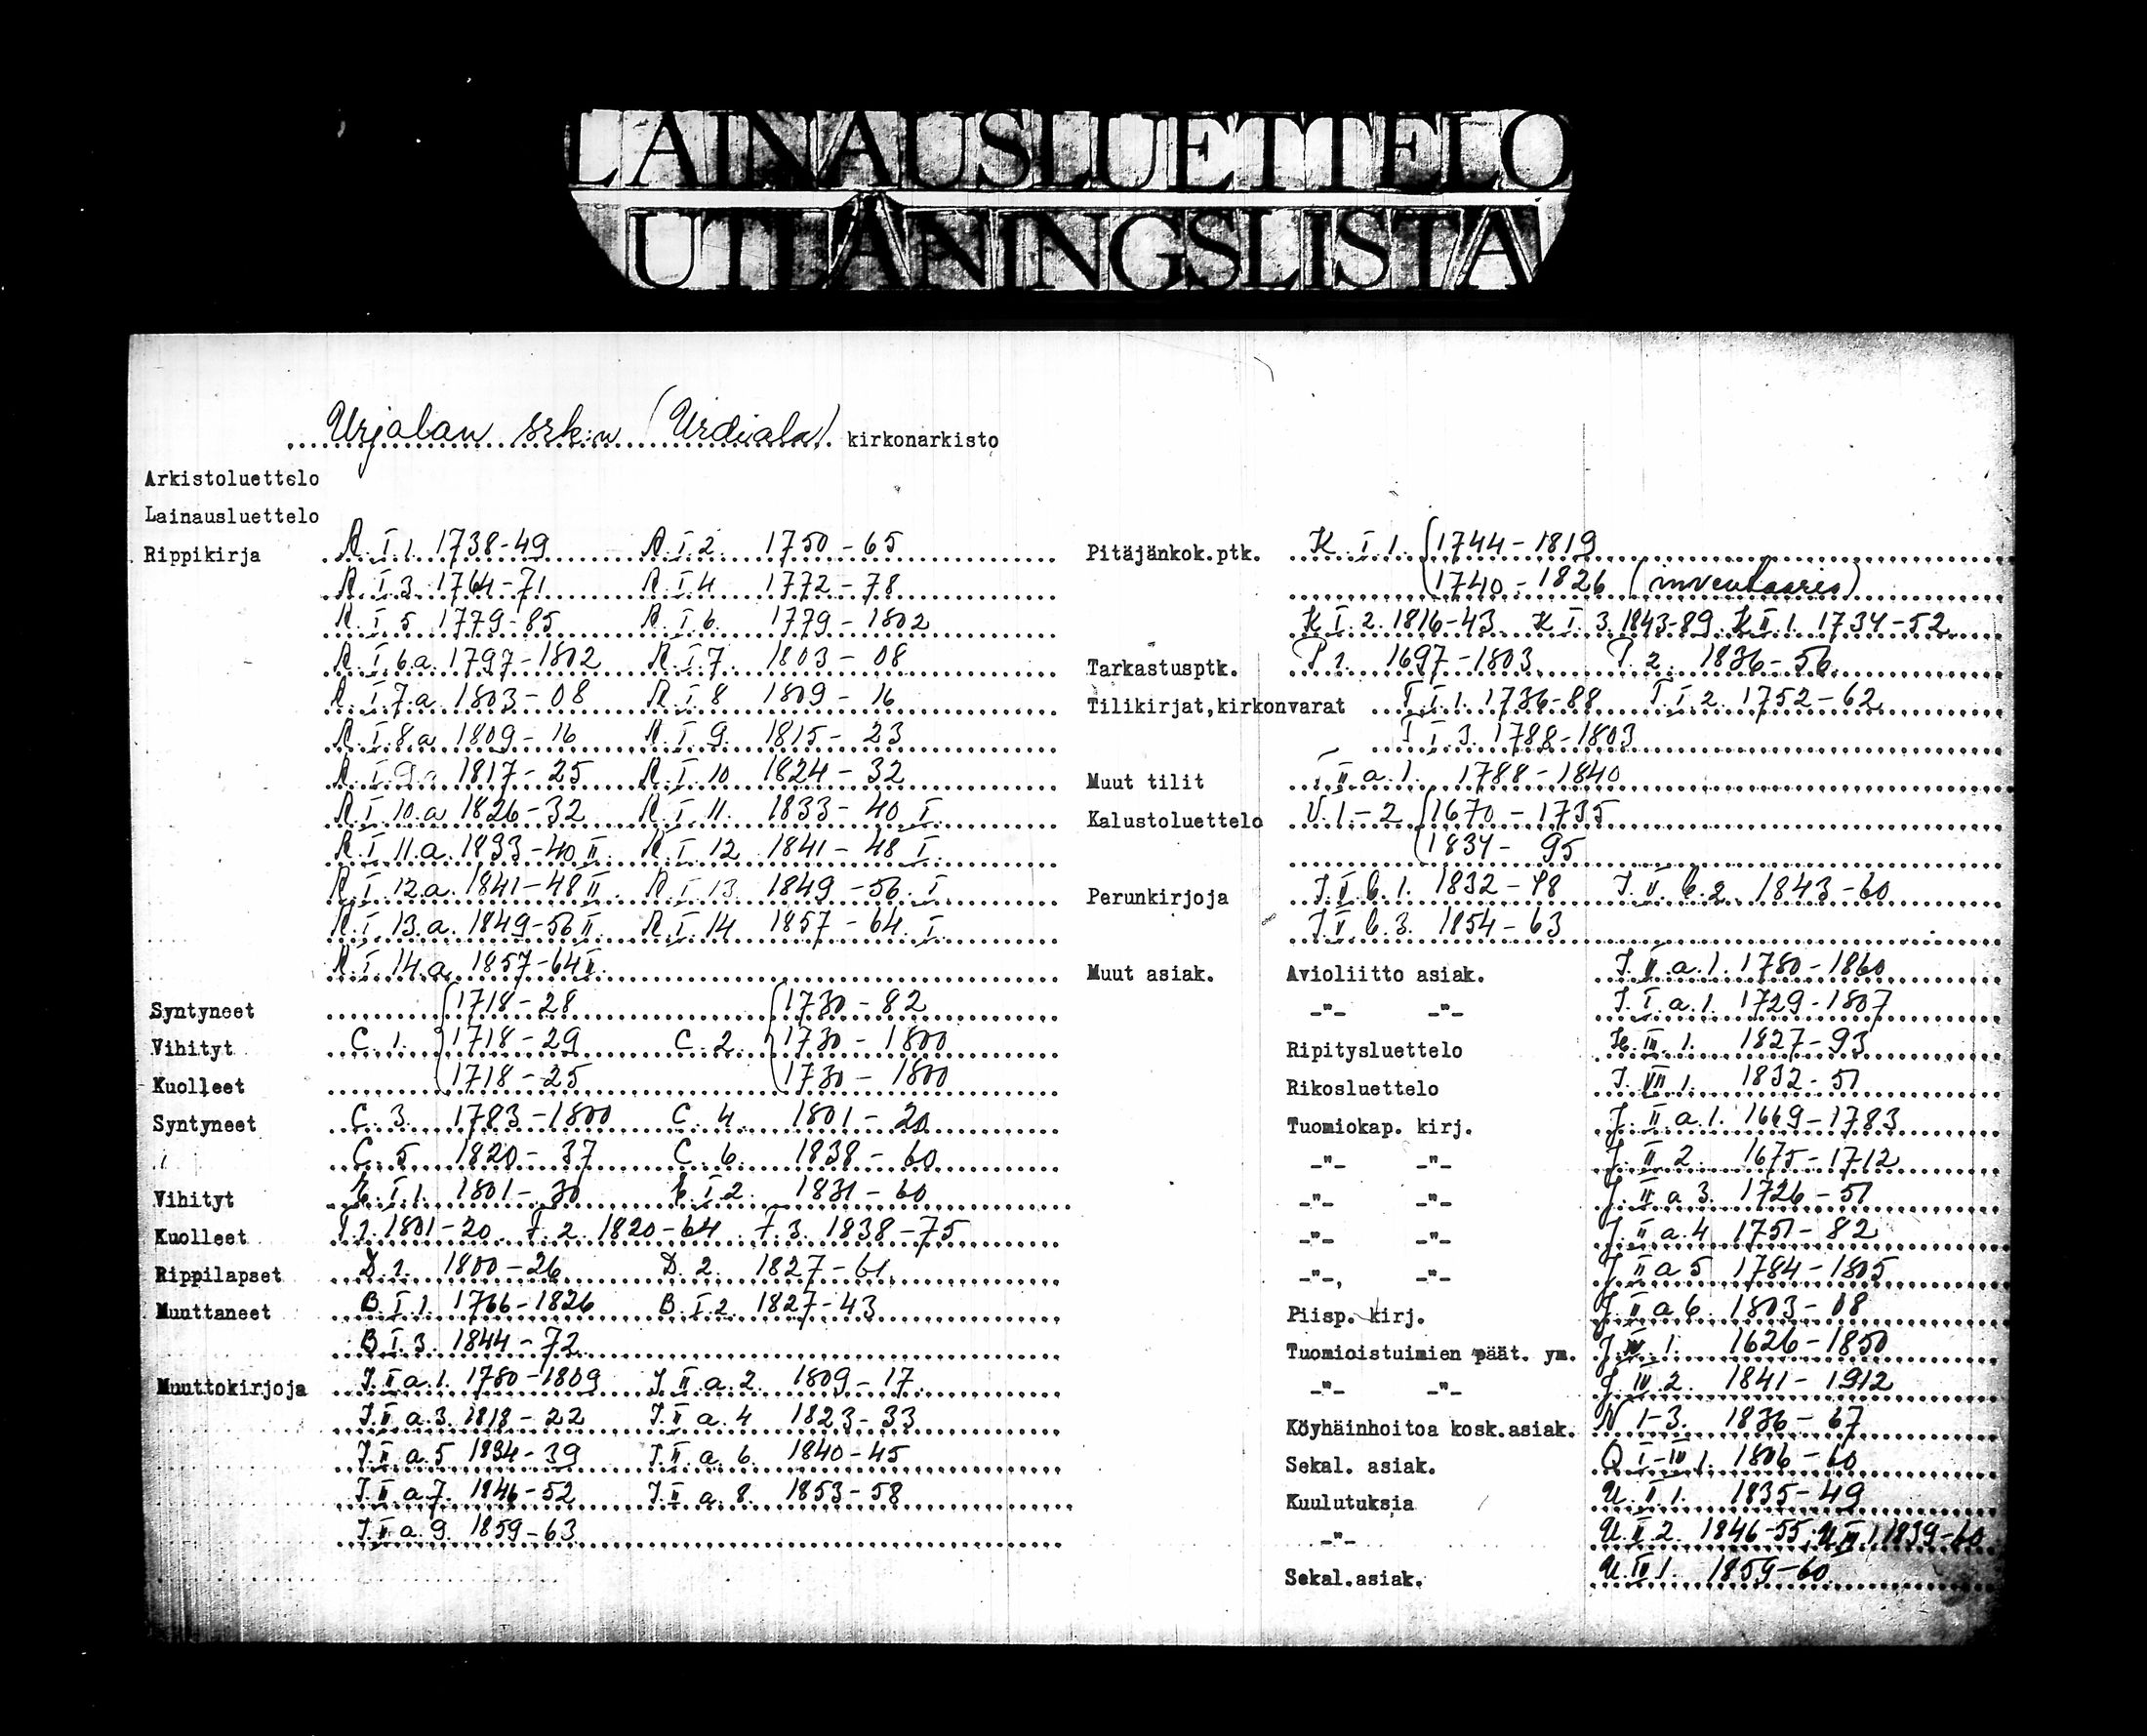 LAINAUSLUETTELO
UTLÅNINGSLISTA
Urjalan srk:n (Urdiala) kirkonarkisto
Arkistoluettelo
Lainausluettelo
Rippikirja R. I. 1. 1738-49 R. I. 2. 1750-65
R. I. 3. 1764-71 R. I. 4 1772-78
R. I. 5 1779-85 R. I. 6. 1779-1802
R. I. 6.a. 1797-1802 R. I. 7. 1803-08
R. I. 7.a. 1803-08 R. I. 8 1809-16
R. I. 8.a 1809-16 R. I. 9. 1815-23
R. I. 9.a 1817-25 R. I. 10 1824-32
R. I. 10.a 1826-32 R. I. 11. 1833-40 I.
R. I. 11.a. 1833-40 II. R. I. 12 1841-48 I.
R. I. 12.a. 1841-48 II. R. I. 13. 1849-56. I
R. I. 13.a. 1849-56 II. R. I. 14 1857-64. I.
R. I. 14.a 1857-64 II.
Syntyneet 1718-28 1730-82
Vihityt C. 1. 1718-29 C. 2. 1730-1800
Kuolleet 1718-25 1730-1800
Syntyneet C. 3. 1783-1800 C. 4. 1801-20
C. 5 1820-37 C. 6. 1838-60
Vihityt E. I. 1. 1801-30 E. I. 2. 1831-60
Kuolleet F. 1. 1801-20. F. 2. 1820-64 F. 3. 1838-75
Rippilapset D. 1. 1800-26 D. 2. 1827-61.
Muuttaneet B. I. 1. 1766-1826 B. I. 2. 1827-43
B I. 3. 1844-72.
Muuttokirjoja J. II a. 1. 1780-1809 J. II. a. 2. 1809-17.
J. II a. 3. 1818-22 J. II a. 4 1823-33
J. II a. 5 1834-39 J. II a. 6. 1840-45
J. II a. 7. 1846-52 J. II a. 8. 1853-58
J. II a. 9. 1859-63
Pitäjänkok.ptk. K. I. 1. 1744-1819
1740-1826 (inventaario)
K I. 2. 1816-43. K I. 3. 1843-89. K II. 1. 1734-52.
Tarkastusptk. P 1. 1697-1803. P. 2. 1836-56.
Tilikirjat,kirkonvarat T. I. 1. 1736-88 T. I. 2. 1752-62
T I. 3. 1788-1803
Muut tilit II a. 1. 1788-1840
Kalustoluettelo U. 1-2 1670-1735
1834-95
Perunkirjoja J. V b. 1. 1832-48 J. V. b. 2. 1843-60
J. V b. 3. 1854-63
Muut asiak. Avioliitto asiak. J. V. a. 1. 1780-1860
-"- -"- J. I. a. 1. 1729-1807
Ripitysluettelo III. 1. 1827-93
Rikosluettelo J. VII 1. 1832-51
Tuomiokap. kirj. J. II. a. 1. 1669-1783
-"- -"- J. II 2. 1675-1712
-"- -"- J. II a 3. 1726-51
-"- -"- J. II a. 4 1751-82
-"-, -"- J II a 5 1784-1805
Piisp. kirj. J. II a 6. 1803-08
Tuomioistuimien päät. ym. J. IV 1. 1626-1850
-"- -"- J. IV. 2. 1841-1912
Köyhäinhoitoa kosk.asiak. N 1-3. 1836-67
Sekal. asiak. Q I-IV 1. 1806-60
Kuulutuksia U. II 1. 1835-49
-"- U. II 2. 1846-55, U. III 1. 1839-60
Sekal.asiak. U. IV 1. 1859-60